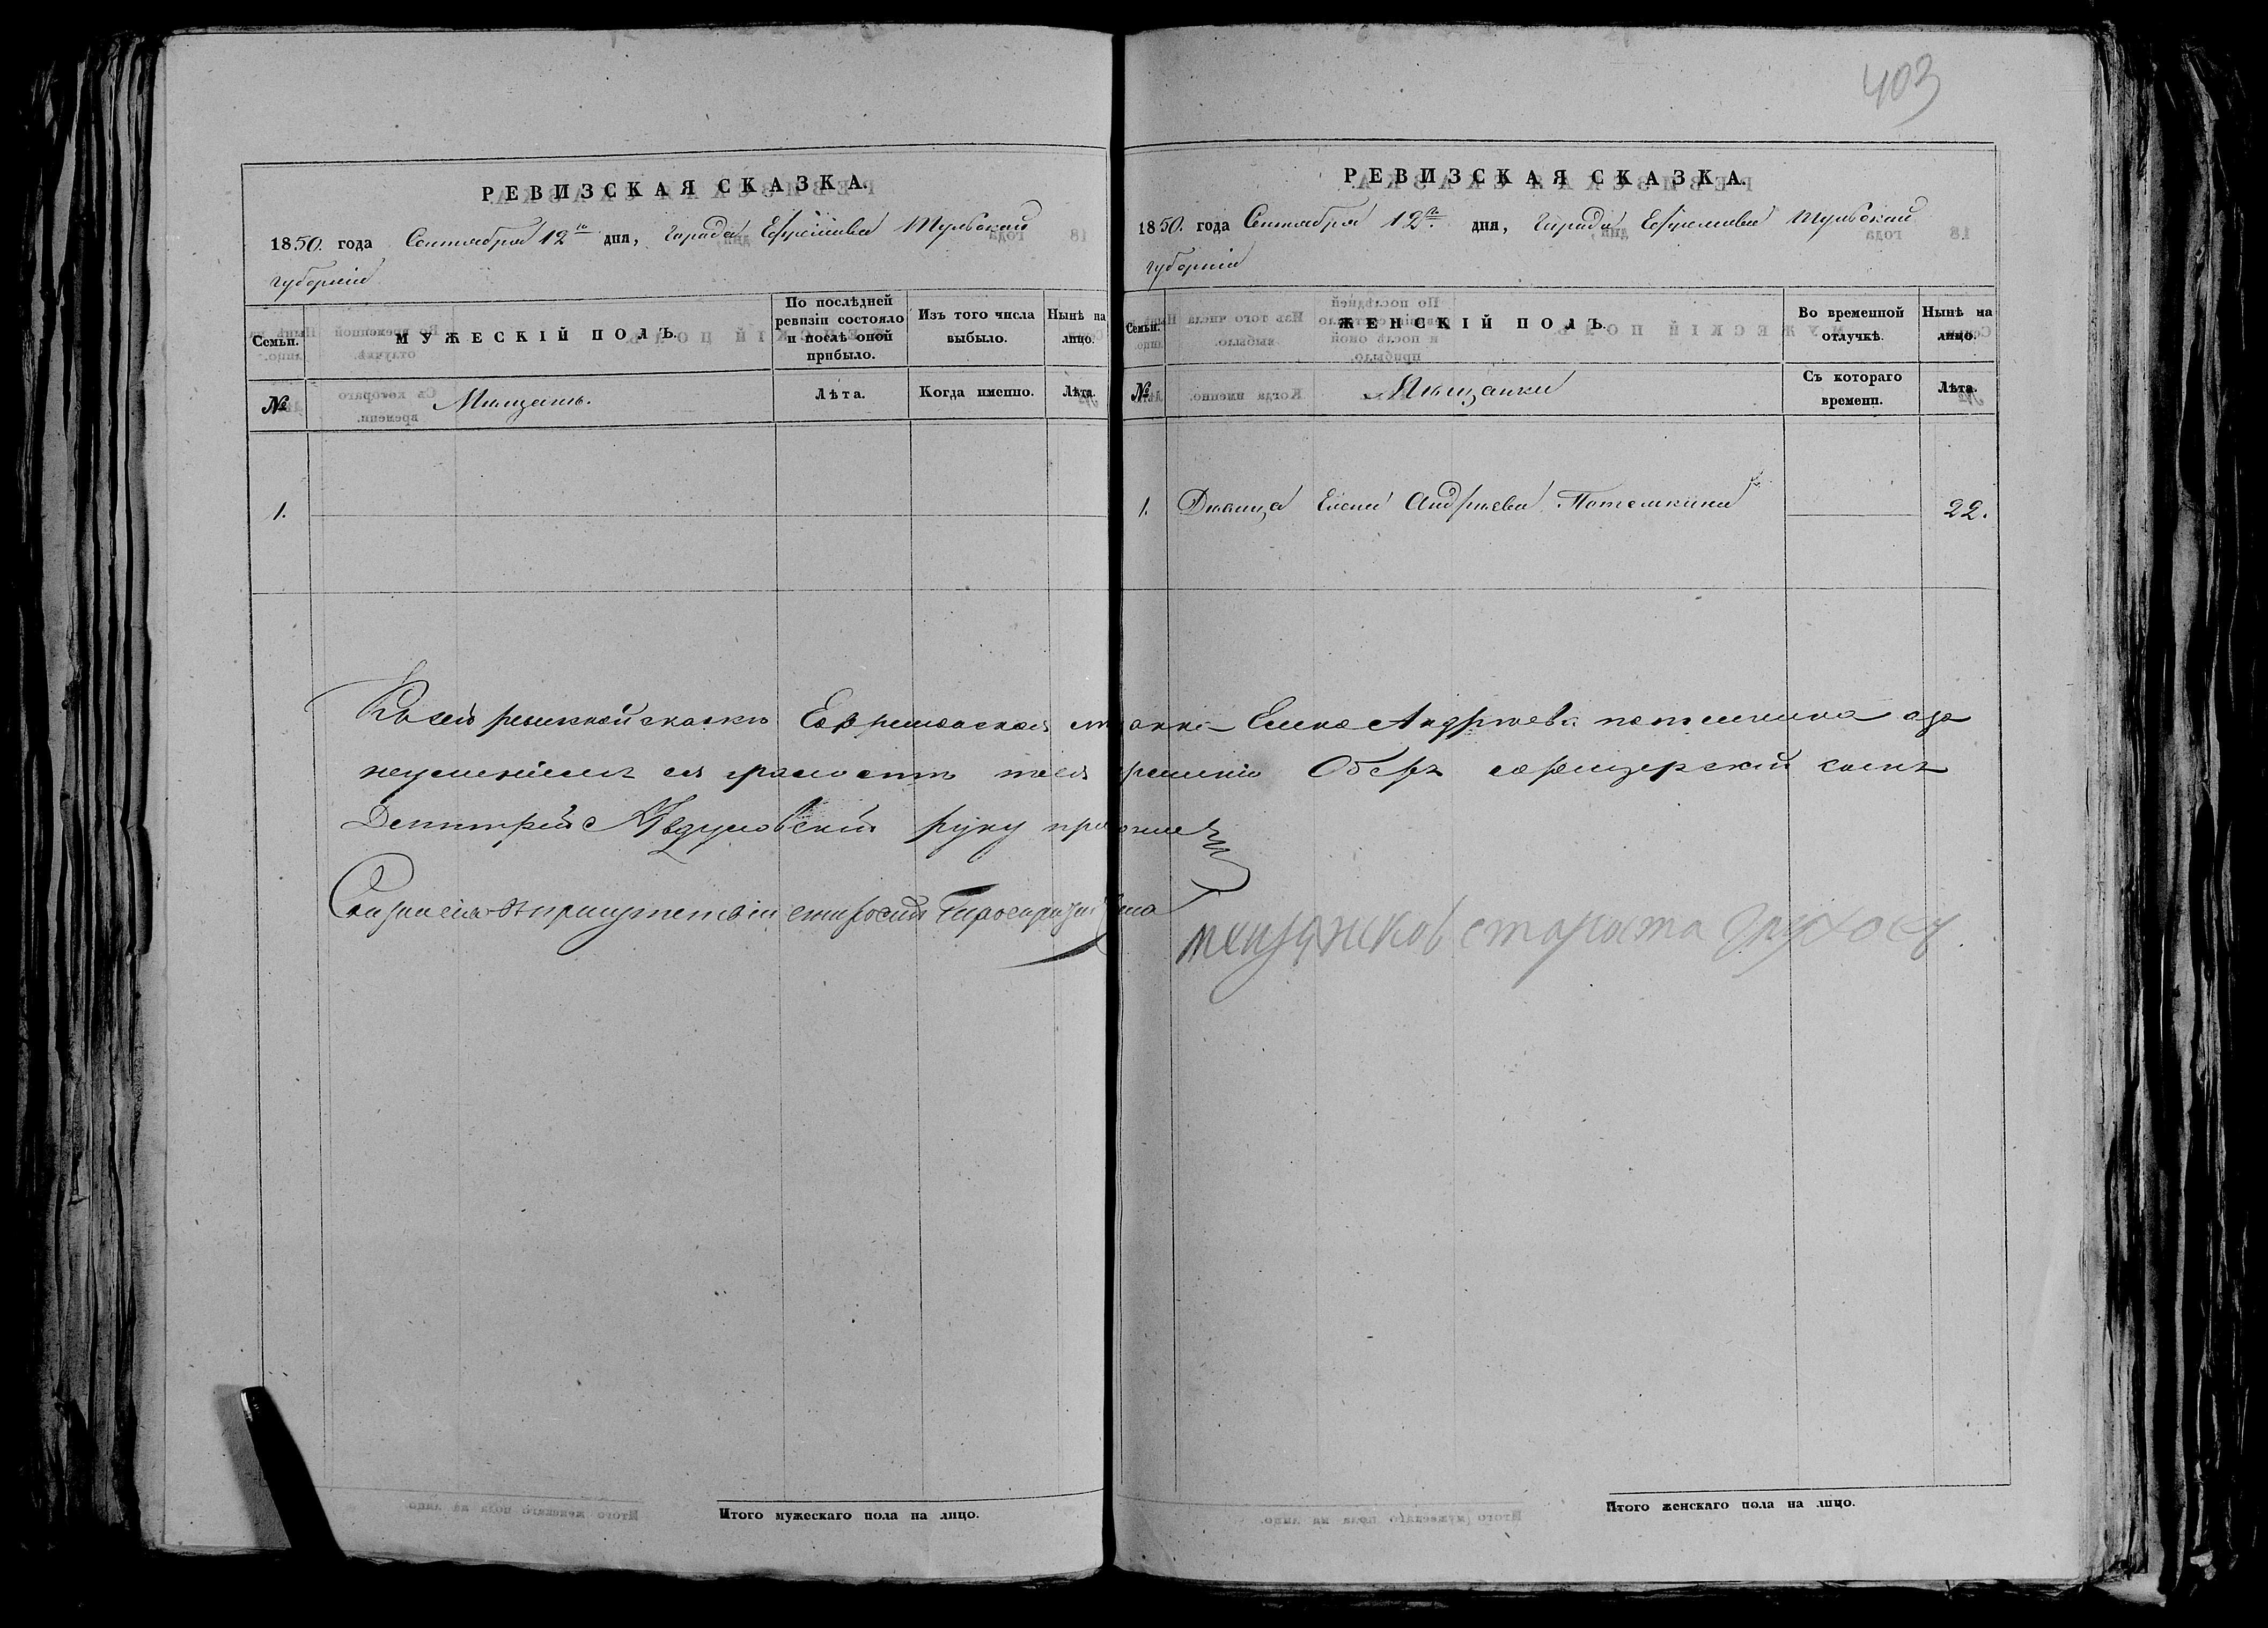 403
РЕВИЗСКАЯ СКАЗКА.
1850. года Сентября 12го дня, Города Ефремова Тульской
губерніи
Семьи.
МУЖЕСКІЙ ПОЛЪ.
По послѣдней
ревизіи состояло
и послѣ оной
прибыло.
Изъ того числа
выбыло.
Нынѣ на
лицо.
№
Мѣщанъ.
Лѣта.
Когда именно.
Лѣта.
1.
РЕВИЗСКАЯ СКАЗКА.
1850. года Сентября 12го дня, Города Ефремова Тульской
губерніи
Семьи.
ЖЕНСКІЙ ПОЛЪ.
Во временной
отлучкѣ.
Нынѣ на
лицо.
№
Мѣщанки
Съ котораго
времени.
Лѣта.
1. Дѣвица Елена Андрѣева Потемкина 22.
Къ сей ревизкой сказкѣ Ефремовская Елена Андрѣева потемкина а за
неумениемъ ея грамотѣ Оберъ офицерский сынъ
Дмитрий руку
Сказка сія въ присутствіи
староста
Итого мужескаго пола на лицо.
Итого женскаго пола на лицо.